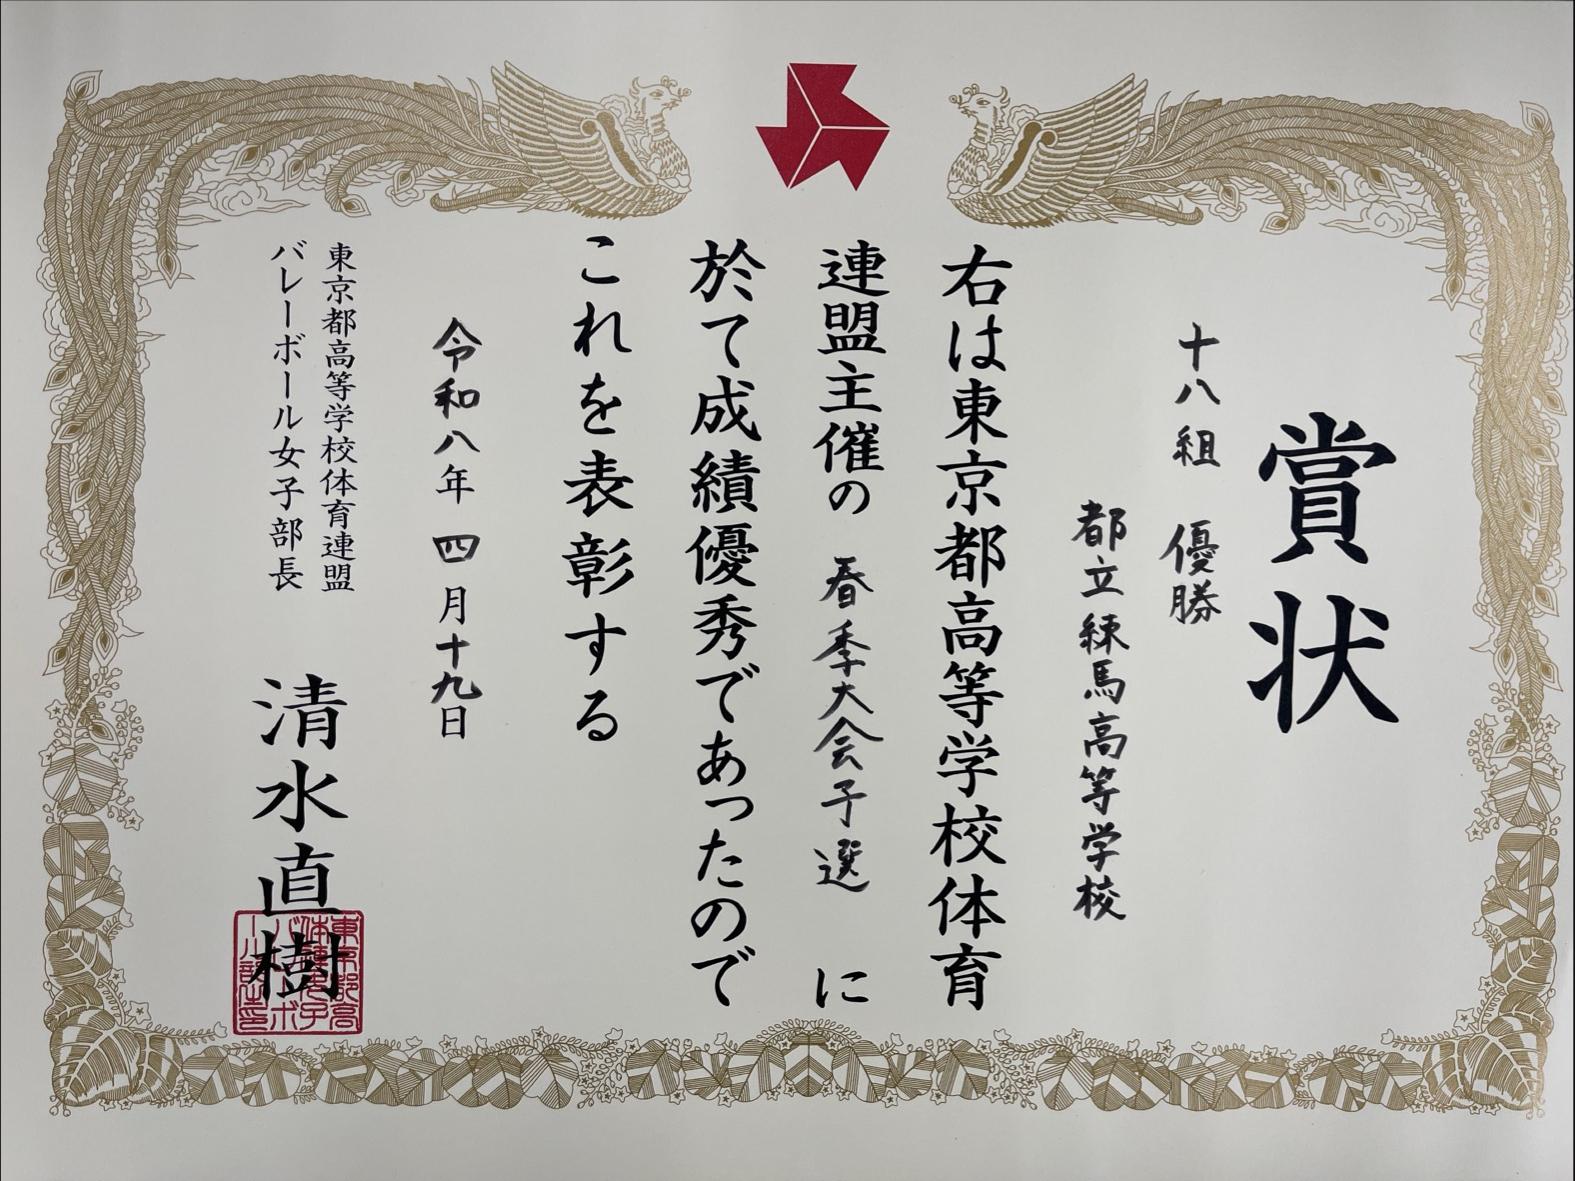 賞状
十八組 優勝
都立練馬高等学校
右は東京都高等学校体育
連盟主催の 春季大会予選 に
於て成績優秀であったので
これを表彰する
令和八年四月十九日
東京都高等学校体育連盟
バレーボール女子部長
清水直樹